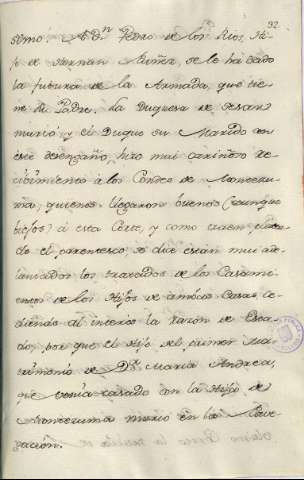 92
simo. A Dn Pedro de los Rios, Hi-
jo de Hernan Nuñez, se le ha dado
la futura de la Armada, que tie-
ne su Padre. La Duquesa de Sesar
murió; y el Duque su Marido con
este desengaño, hizo mui cariñoso re-
civimiento à los Condes de Montezu-
ma, quienes llegaron buenos (aunque
viejos) à esta Corte, y como traen
do el parentesco, se dice estan mui ade-
lantados los tratados de los Casamien-
tos de los Hijos de ambas Casas, ce-
diendo al interès la razon de Esta-
do, por que el Hijo del primer Ma-
trimonio de Da. Maria Andrea,
que venia casado con la Hija de
Montezuma murió en la Nave-
gacion.